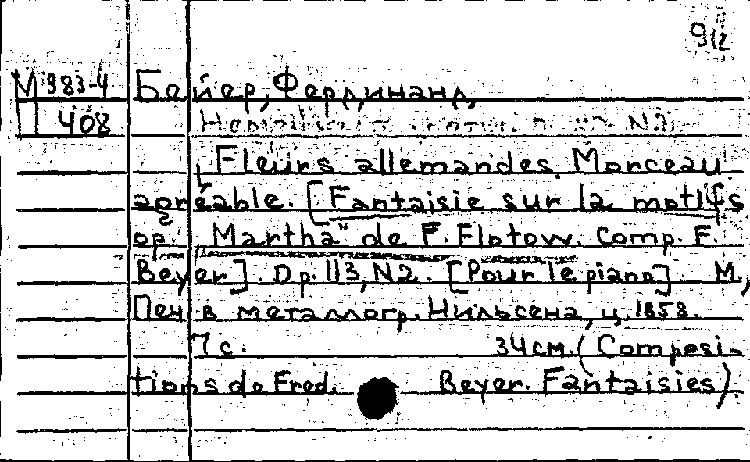 912
М 983-4 Бейер, Фердинанд,
П 408
Fleurs allemandes. Morceau
agréable. [Fantaisie sur la motifs
op. "Martha" de F. Flotow. Comp. F.
Beyer]. Op. 113, N2. [Pour le piano]. М.,
Печ. в металлогр. Нильсена, ц. 1858.
7 с. 34 см. (Composi-
tions de Fred. Beyer. Fantaisies).